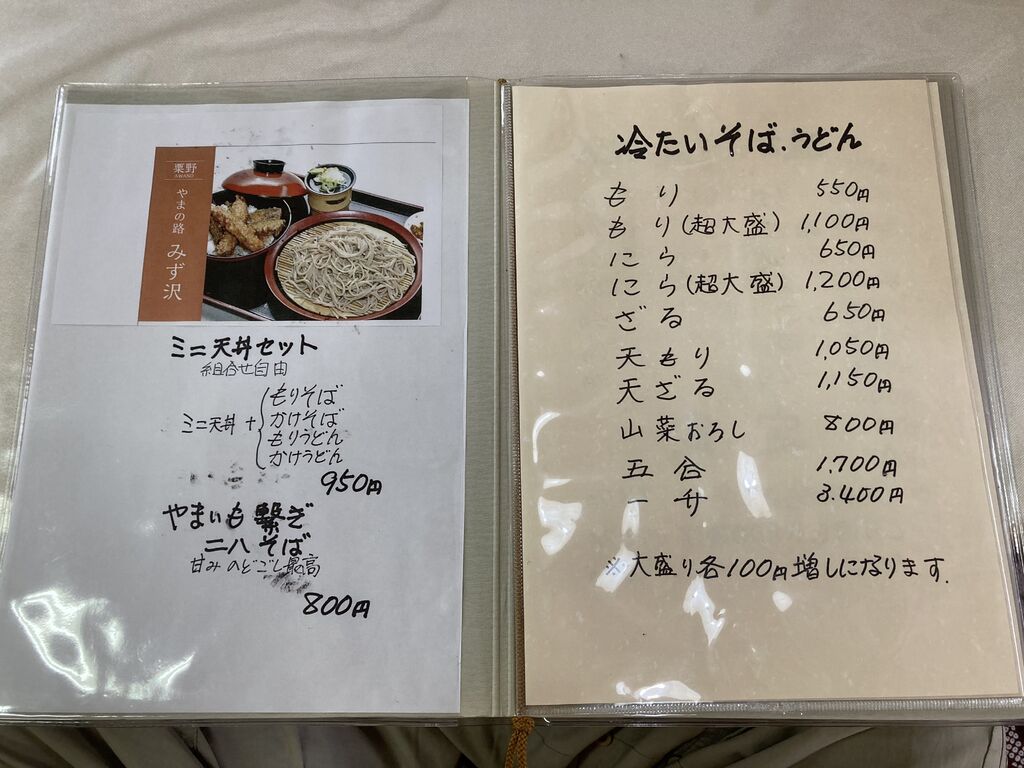 粟野
AWANO
やまの路
みず沢
ミニ天丼セット
組合せ自由
ミニ天丼 +
もりそば
かけそば
もりうどん
かけうどん
950円
やまいも繋ぎ
二八そば
甘み のどごし最高
800円
冷たいそば、うどん
もり 550円
もり(超大盛) 1,100円
にら 650円
にら(超大盛) 1,200円
ざる 650円
天もり 1,050円
天ざる 1,150円
山菜おろし 800円
五合 1,700円
一升 3.400円
※大盛り各100円増しになります.